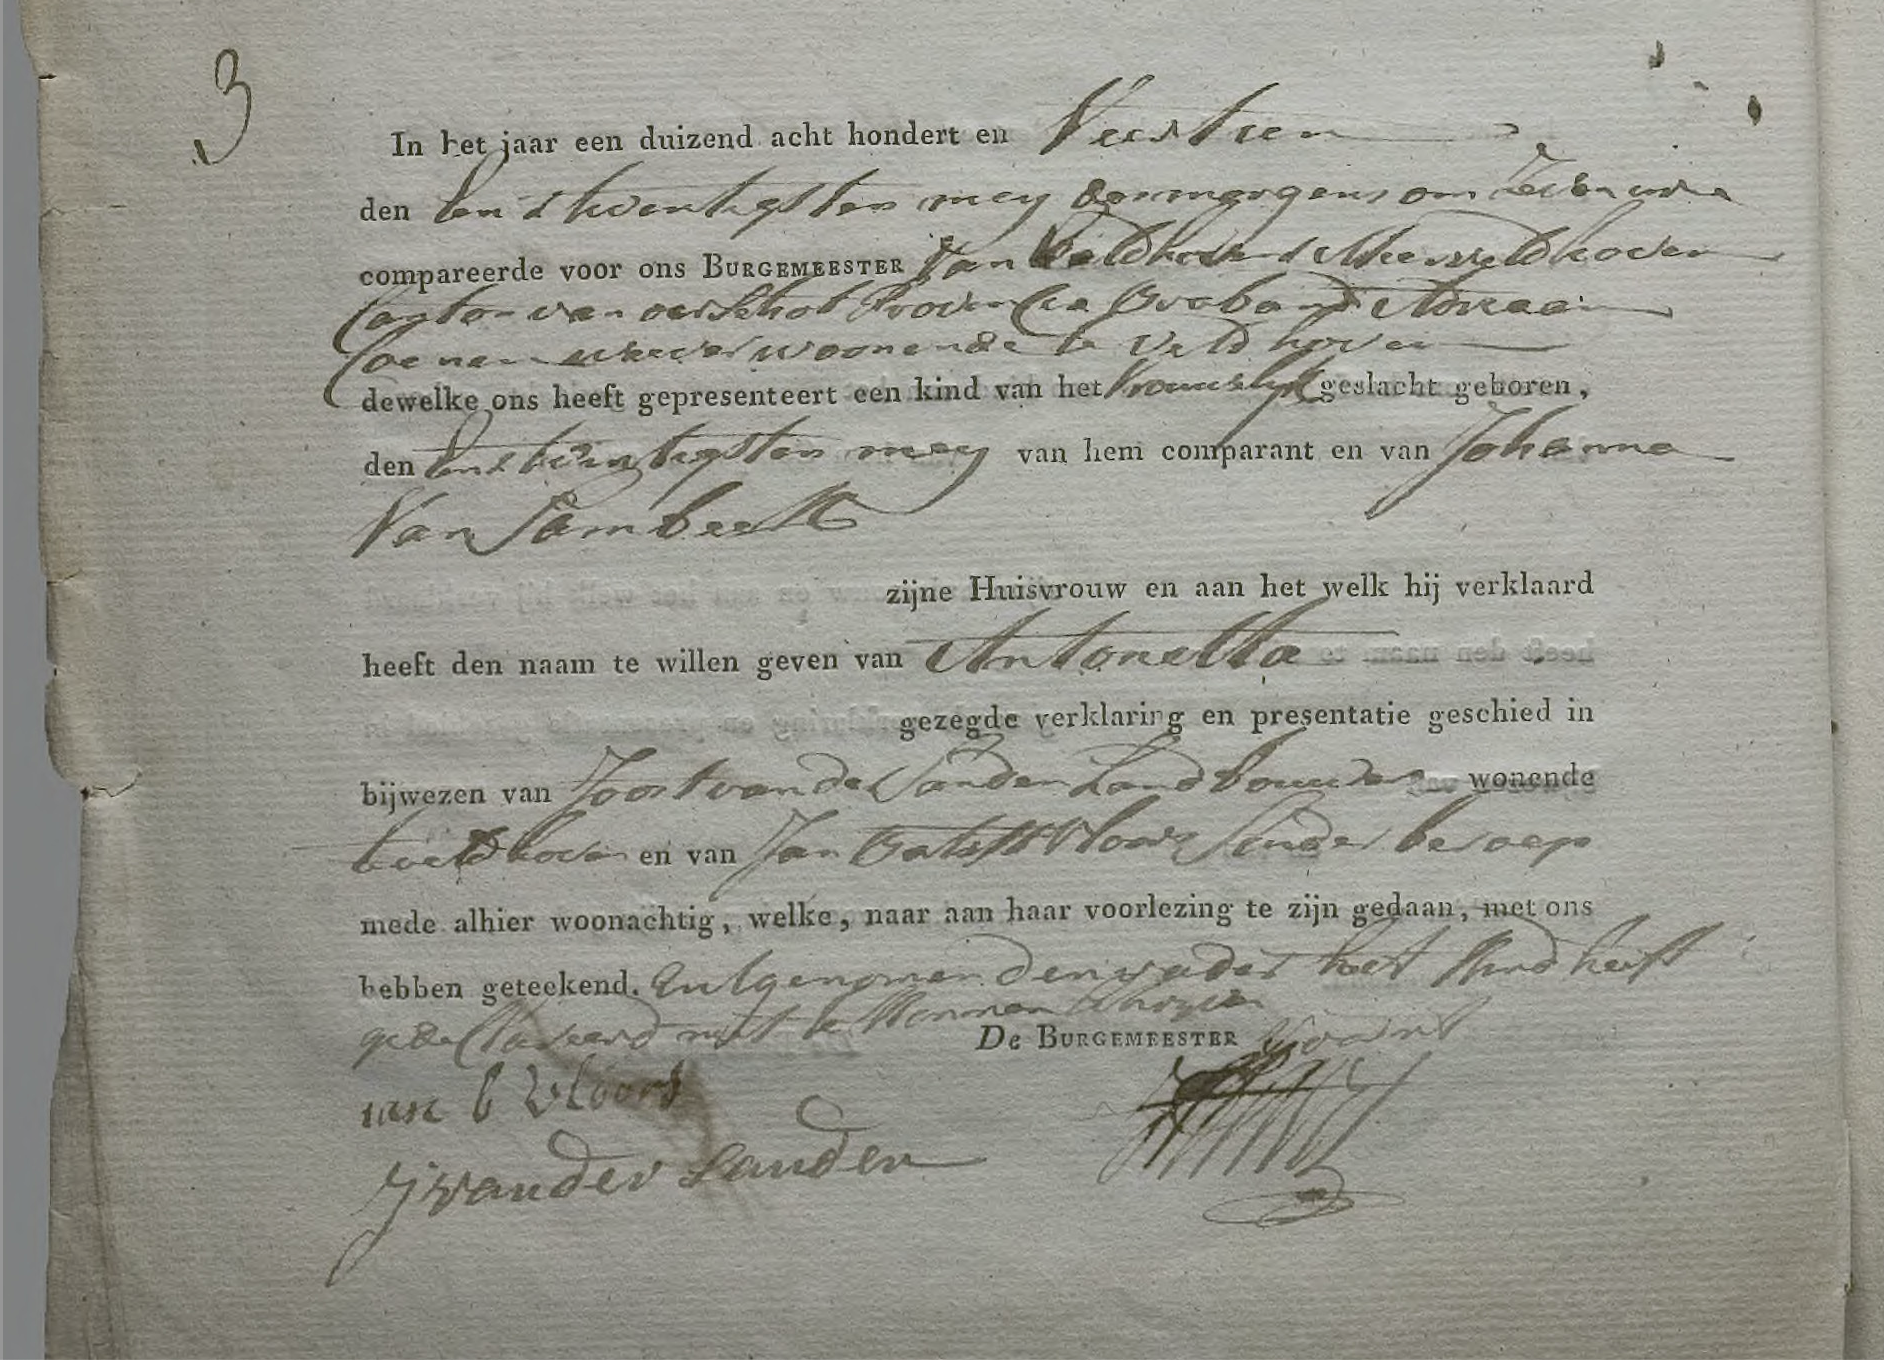 3
In het jaar een duizend acht hondert en Veertien
den een & twentigsten mey smorgens om Zeven uren
compareerde voor ons BURGEMEESTER Van Veldhoven & Meerveldhoven
Canton van oirschot Provincie Braband Adriaan
Coenen wever woonende te Veldhoven
dewelke ons heeft gepresenteert een kind van het vrouwelyk geslacht geboren,
den een & twintigsten mey van hem comparant en van Johanna
Van Sambeek
zijne Huisvrouw en aan het welk hij verklaard
heeft den naam te willen geven van Antonetta
gezegde verklaring en presentatie geschied in
bijwezen van Joost van de Sanden Landbouwer wonende
te veldhoven en van Jan Batist Vloors sonder beroep
mede alhier woonachtig, welke, naar aan haar voorlezing te zijn gedaan, met ons
hebben geteekend. Uitgenomen den vader het kind heeft
gedeclareerd niet te konnen schryven
De BURGEMEESTER
van b vloors
J vander Sanden